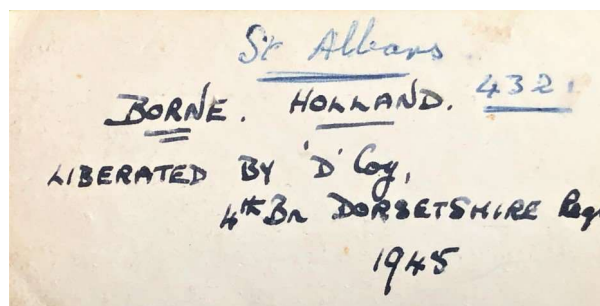 St Albans
BORNE. HOLLAND. 4321
LIBERATED BY 'D' Coy,
4th Bn DORSETSHIRE Reg
1945